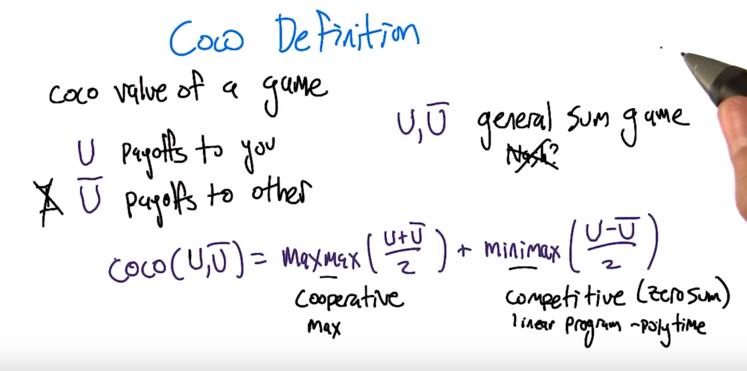 Coco Definition
coco value of a game
U payoffs to you
Ū payoffs to other
U, Ū general sum game
Nash?
coco(U,Ū) = maxmax(U+Ū/2) + minimax(U-Ū/2)
cooperative
max
competitive (zero sum)
linear program ~polytime